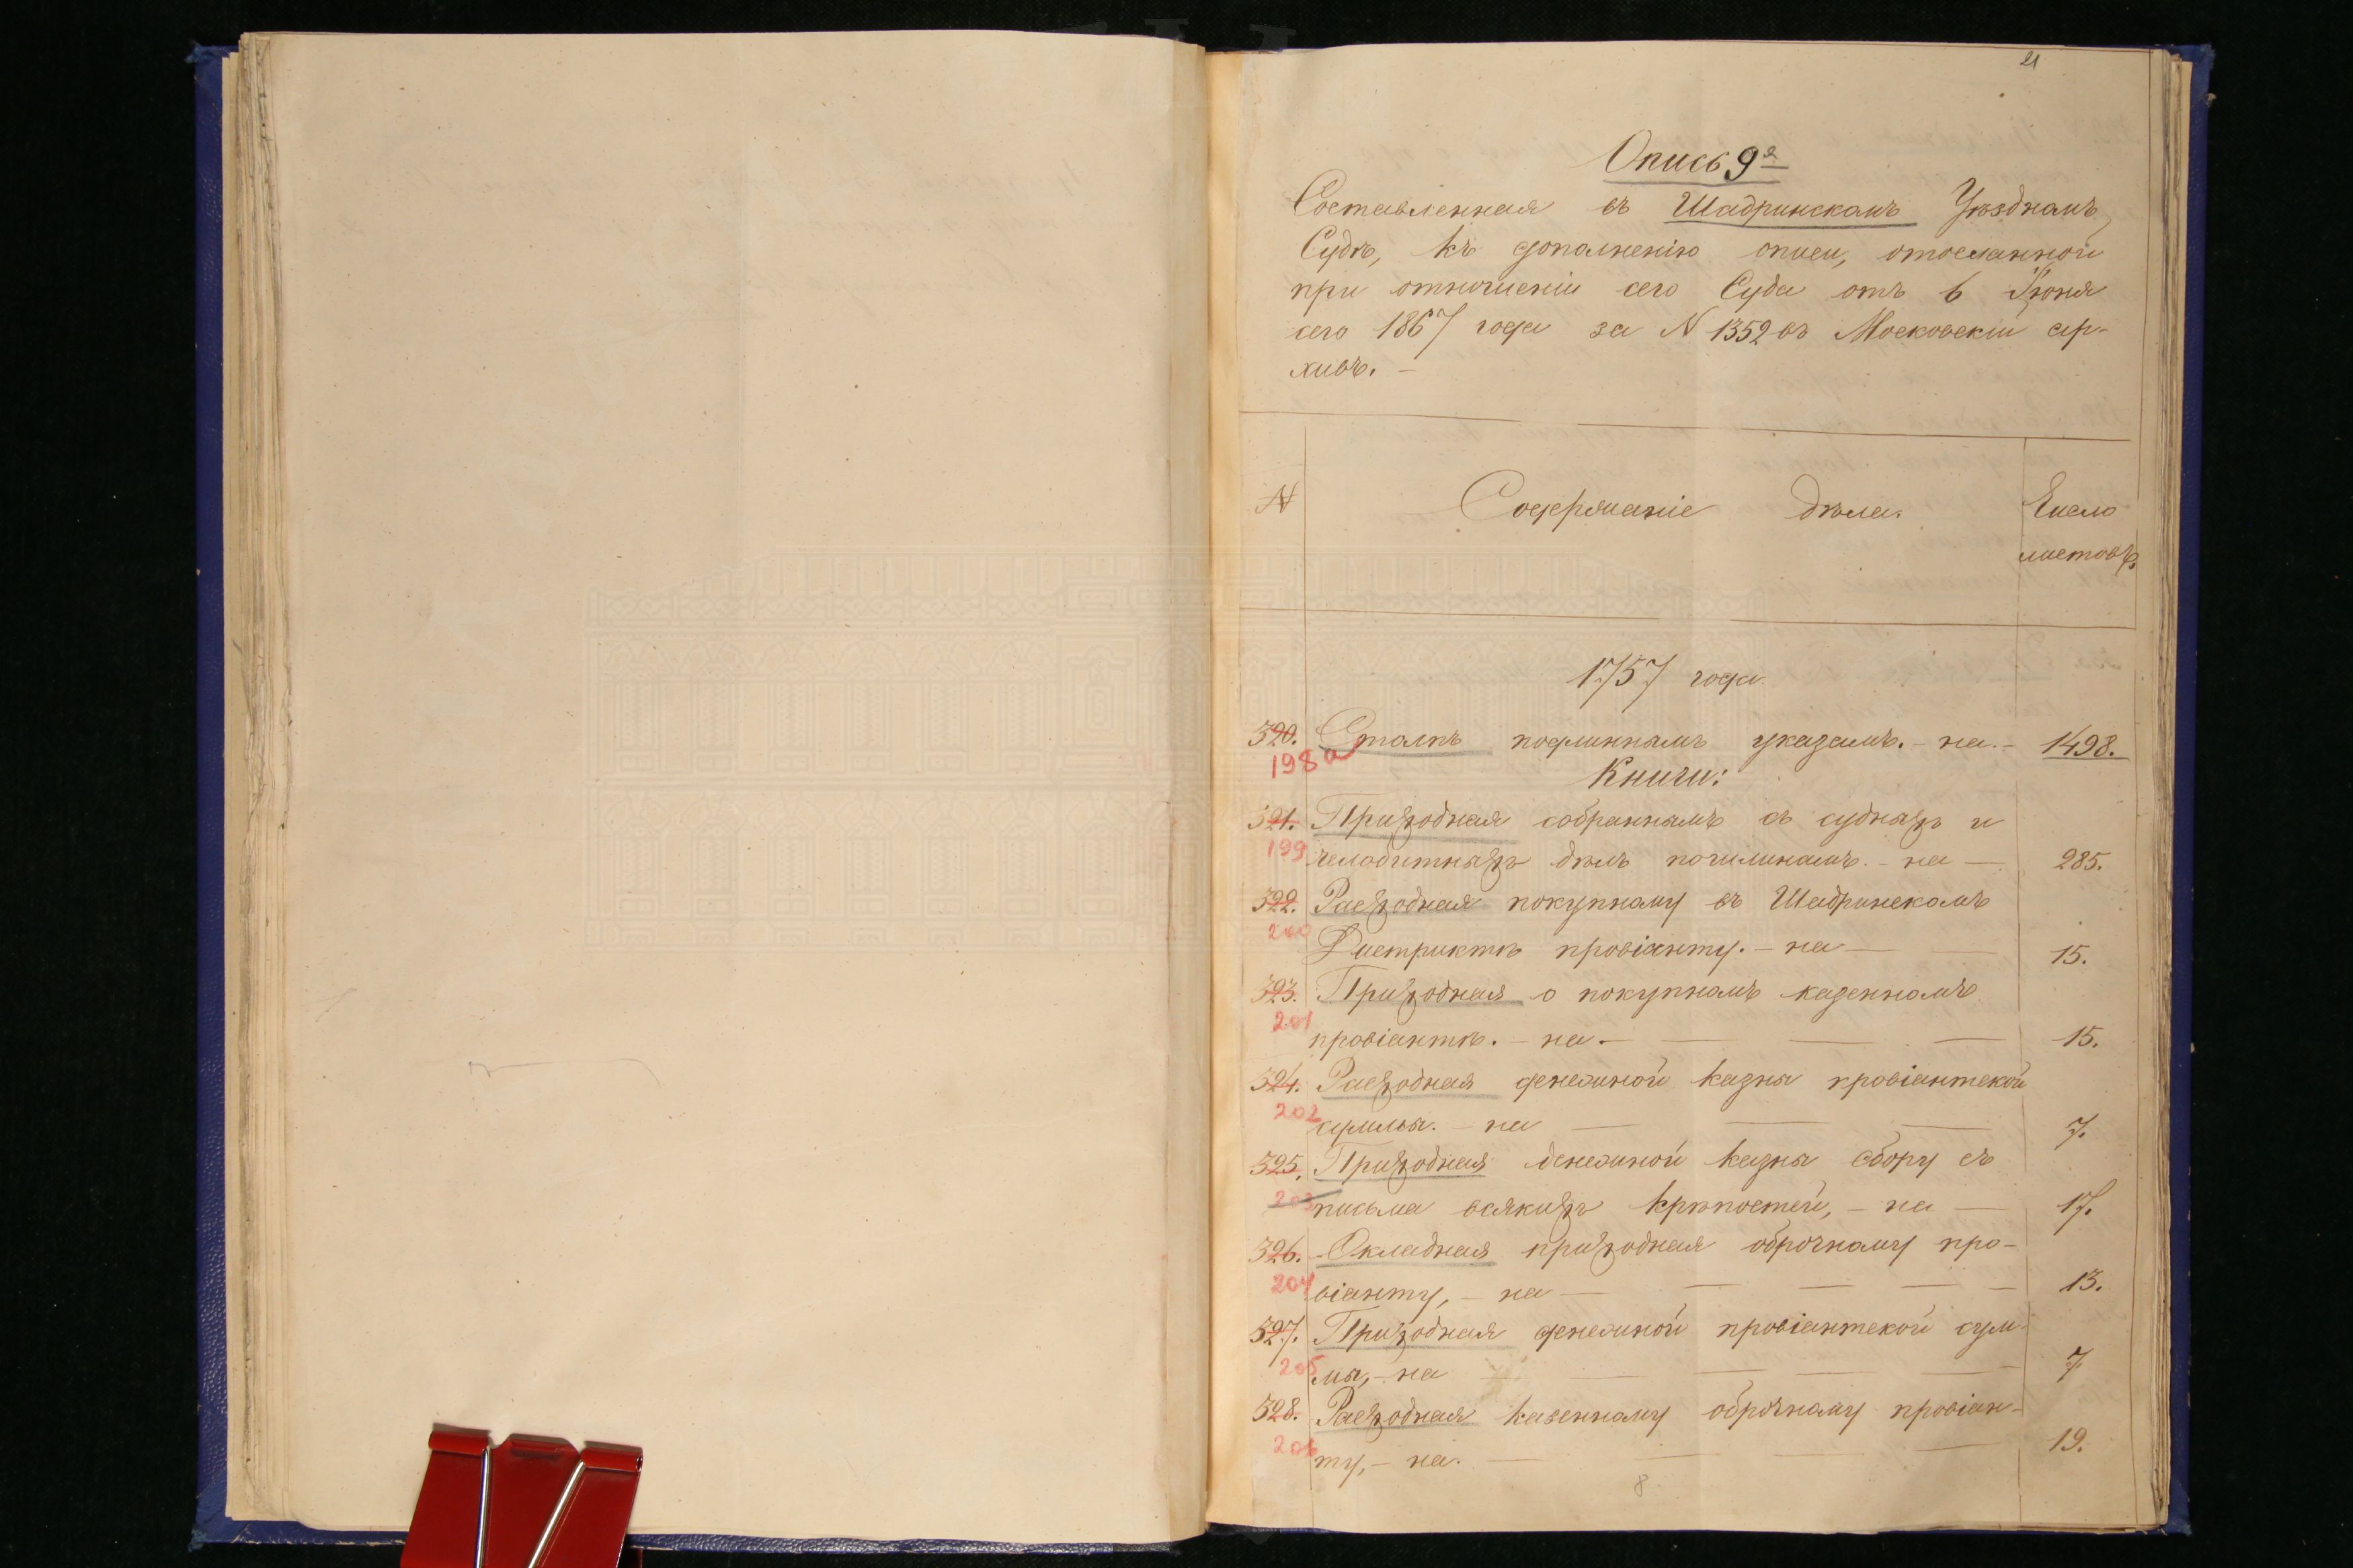 21
Опись 9я
Составленная въ Шадринскомъ Уѣздномъ
Судѣ, къ дополненію описи, отосланной
при отношеніи сего Суда отъ 6 Іюня
сего 1867 года за N 1352 въ Московскій ар-
хивъ. —
N Содержаніе дѣла. Число
листовъ.
1757 года.
320. Столпъ подлиннымъ указамъ. — на. — 1498.
198а
Книги:
321. Приходная собраннымъ съ судныхъ и
199 челобитныхъ дѣлъ пошлинамъ. — на — 285.
322. Расходная покупному въ Шадринскомъ
200 Дистриктѣ провіанту. — на — 15.
323. Приходная о покупномъ казенномъ
201 провіантѣ. — на. — 15.
324. Расходная денежной казны провіантской
202 суммы. — на — 7.
325. Приходная денежной казны сбору съ
203 письма всякихъ крѣпостей, — на — 17.
326. Окладная приходная оброчному про-
204 віанту, — на — 13.
327. Приходная денежной провіантской сум-
205 мы, — на — 7
328. Расходная казенному оброчному провіан-
206 ту, — на. — 19.
8